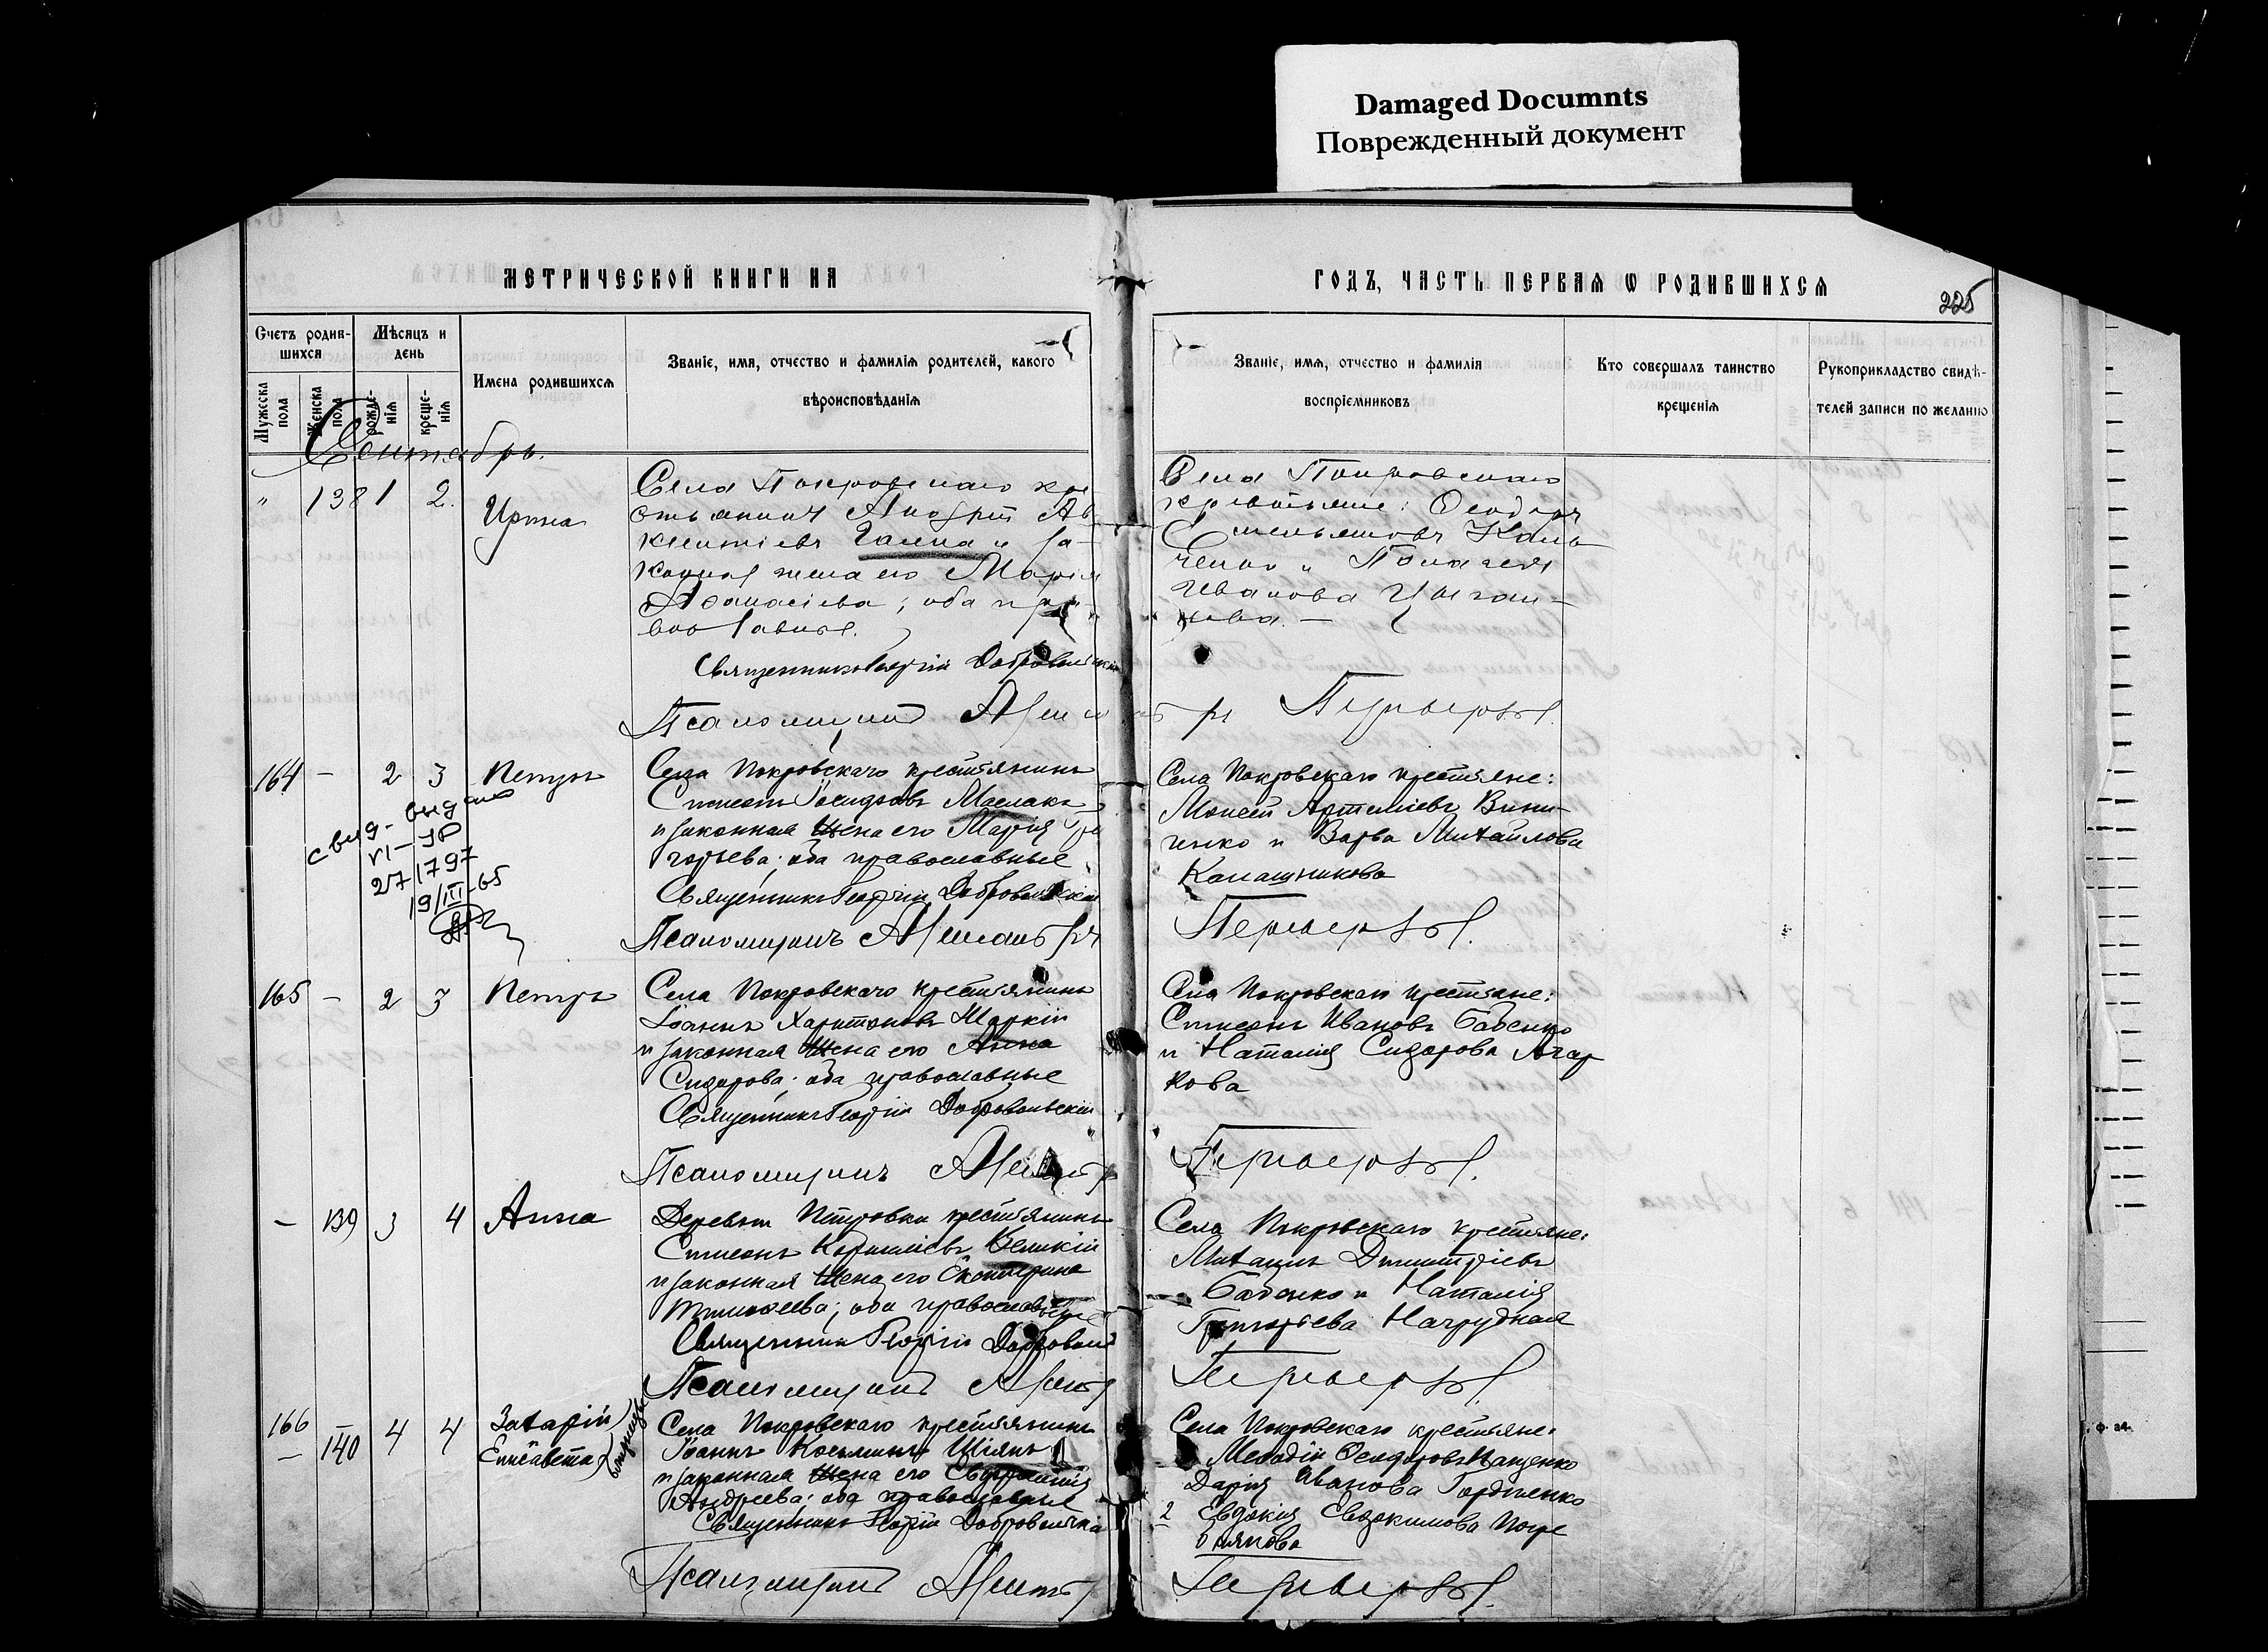 Damaged Documnts
Поврежденный документ
МЕТРИЧЕСКОЙ КНИГИ НА
ГОДЪ, ЧАСТЬ ПЕРВАЯ Ѡ РОДИВШИХСЯ
225
Счетъ родившихся
Мужеска пола
Женска пола
Мѣсяцъ и день
рожденія
крещенія
Имена родившихся
Званіе, имя, отчество и фамилія родителей, какого
вѣроисповѣданія
Званіе, имя, отчество и фамилія
воспріемниковъ
Кто совершалъ таинство
крещенія
Рукоприкладство свидѣ-
телей записи по желанію
Сентябрь.
" 138 1 2. Ирина
Села Покровскаго кре
стьянинъ Андрей Ав
ксентіевъ Галка и за-
конная жена его Марія
Аѳанасіева; оба пра-
вославные.
Священникъ Георгій Добровольскій
Псаломщикъ
Села Покровскаго
крестьяне: Ѳеодоръ
Емельяновъ Каль
ченко и Пелагея
Иванова Цыган-
кова. —
164 — 2 3 Петръ
свид- выдано
VI-ЯР
271797
19/III-65
Села Покровскаго крестьянинъ
Симеонъ Маслакъ
и законная жена его Марія Гри
горьева; оба православные
Священникъ Георгій Добровольскій
Псаломщикъ
Села Покровскаго крестьяне:
Моисей Артеміевъ Вини-
ченко и Варва Михайлова
Калашникова
165 — 2 3 Петръ
Села Покровскаго крестьянинъ
Іоаннъ Харитоновъ Шаркій
и законная жена его Анна
Сидорова; оба православные
Священникъ Георгій Добровольскій
Псаломщикъ
Села Покровскаго крестьяне:
Симеонъ Ивановъ Бабенко
и Наталія Сидорова Агар
кова
— 139 3 4 Анна
Деревни Петровки крестьянинъ
Симеонъ Корниліевъ Великій
и законная жена его Екатерина
Тимоѳеева; оба православные
Священникъ Георгій Добровольс
Псаломщикъ
Села Покровскаго крестьяне:
Михаилъ Димитріевъ
Бабенко и Наталія
Григорьева Нагрудная
166 — 4 4 Захарій
— 140 Елисавета
близнецы
Села Покровскаго крестьянинъ
Іоаннъ Косьминъ Шіянъ
и законная жена его Евфросинія
Андреева; оба православные
Священникъ Георгій Добровольскій
Псаломщикъ
Села Покровскаго крестьяне:
Меѳодій Ѳеодоровъ Ищенко
Дарія Иванова Гордіенко
2 Евдокія Евдокимова Погре
бнякова